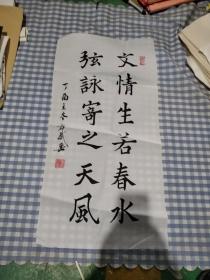 文情生若春水
弦詠寄之天風
丁酉之冬